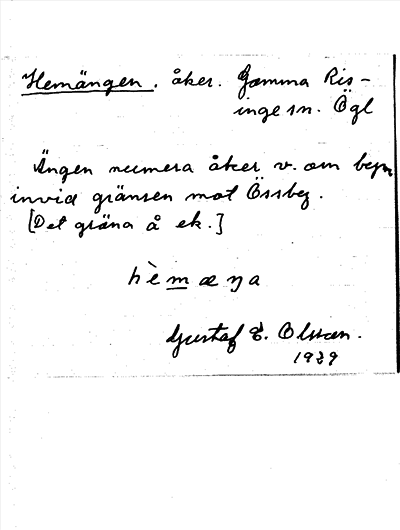 Hemängen, åker. Gamma Ris-
inge sn. Ögl
Ängen numera åker v. om byn,
invid gränsen mot Össby.
[Det gräna å ek.]
hèmæŋa
Gustaf E. Olsson.
1929